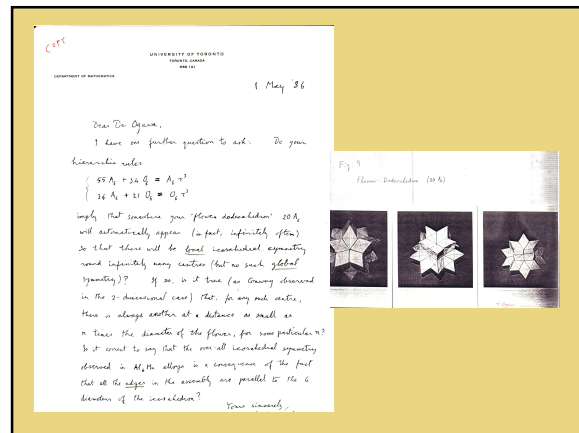 COPY
UNIVERSITY OF TORONTO
TORONTO, CANADA
M5S 1A1
DEPARTMENT OF MATHEMATICS
1 May '86
Dear Dr Ogawa,
I have one further question to ask: Do your
hierarchic rules
55 A₆ + 34 O₆ = A₆ τ³
34 A₆ + 21 O₆ = O₆ τ³
imply that somewhere your 'flower dodecahedron' 20 A₆
will automatically appear (in fact, infinitely often)
so that there will be local icosahedral symmetry
round infinitely many centres (but no such global
symmetry)? If so, is it true (as Conway observed
in the 2-dimensional case) that, for any such centre,
there is always another at a distance as small as
n times the diameter of the flower, for some particular n?
Is it correct to say that the over-all icosahedral symmetry
observed in Al₆Mn alloys is a consequence of the fact
that all the edges in the assembly are parallel to the 6
diameters of the icosahedron?
Yours sincerely,
Fig. 9
Flower Dodecahedron (20 A₆)